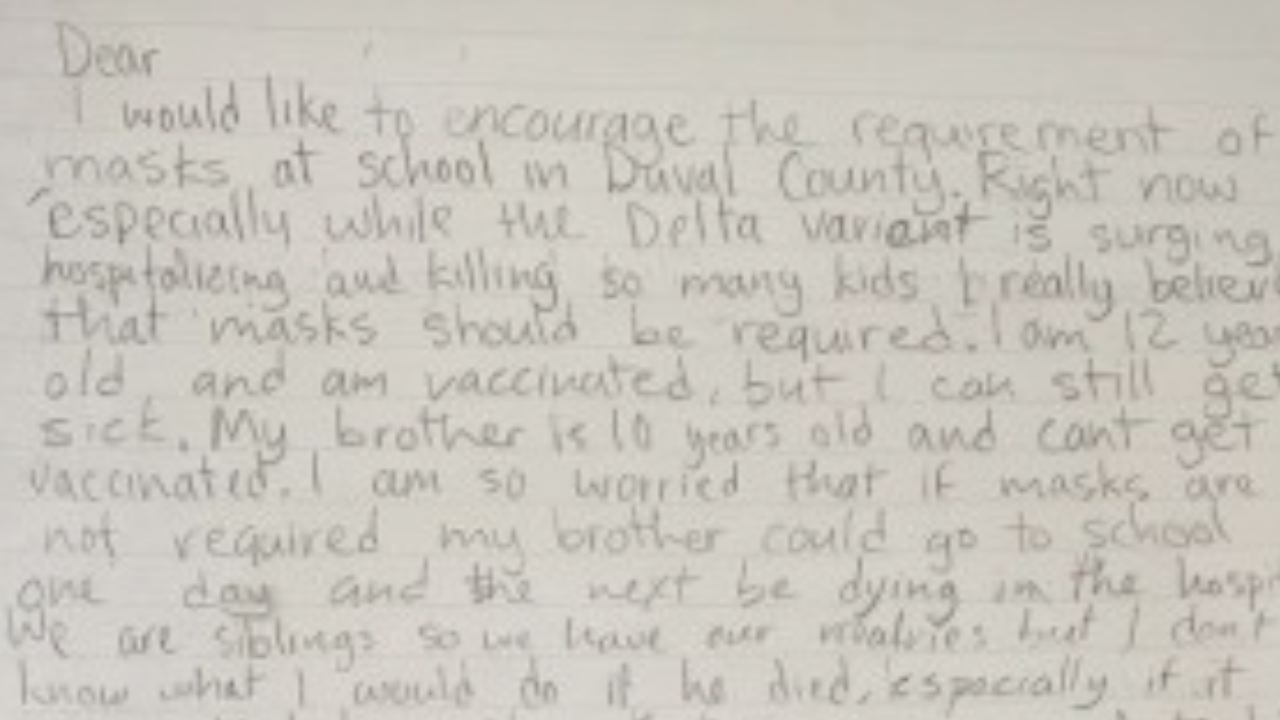 Dear
I would like to encourage the requirement of
masks at school in Duval County. Right now
especially while the Delta variant is surging,
hospitalizing and killing so many kids I really believ
that masks should be required. I am 12 yea
old and am vaccinated, but I can still get
sick. My brother is 10 years old and cant get
vaccinated. I am so worried that if masks are
not required my brother could go to school
one day and the next be dying in the hospi
We are siblings so we have our rivalries but I don't
know what I would do if he died, especially if it